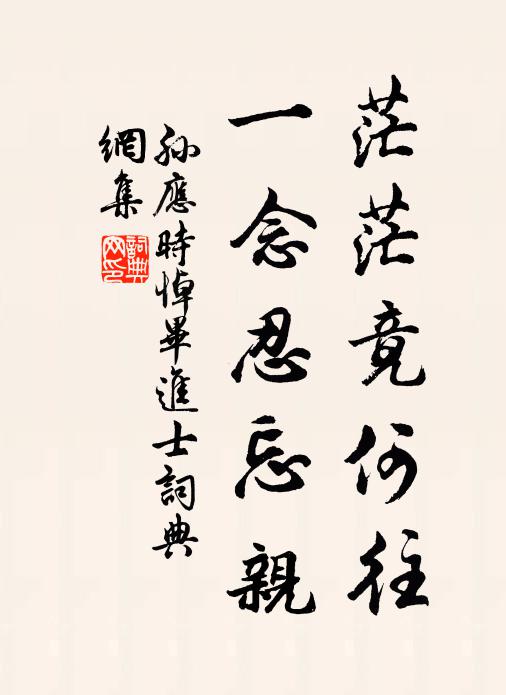 茫茫竟何往
一念忍忘親
孫應時悼畢進士詞典
網集
詞典
网印